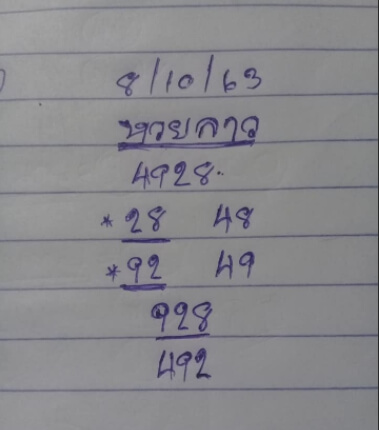 8/10/63
หวยลาว
4928.
*28 48
*92 49
928
492